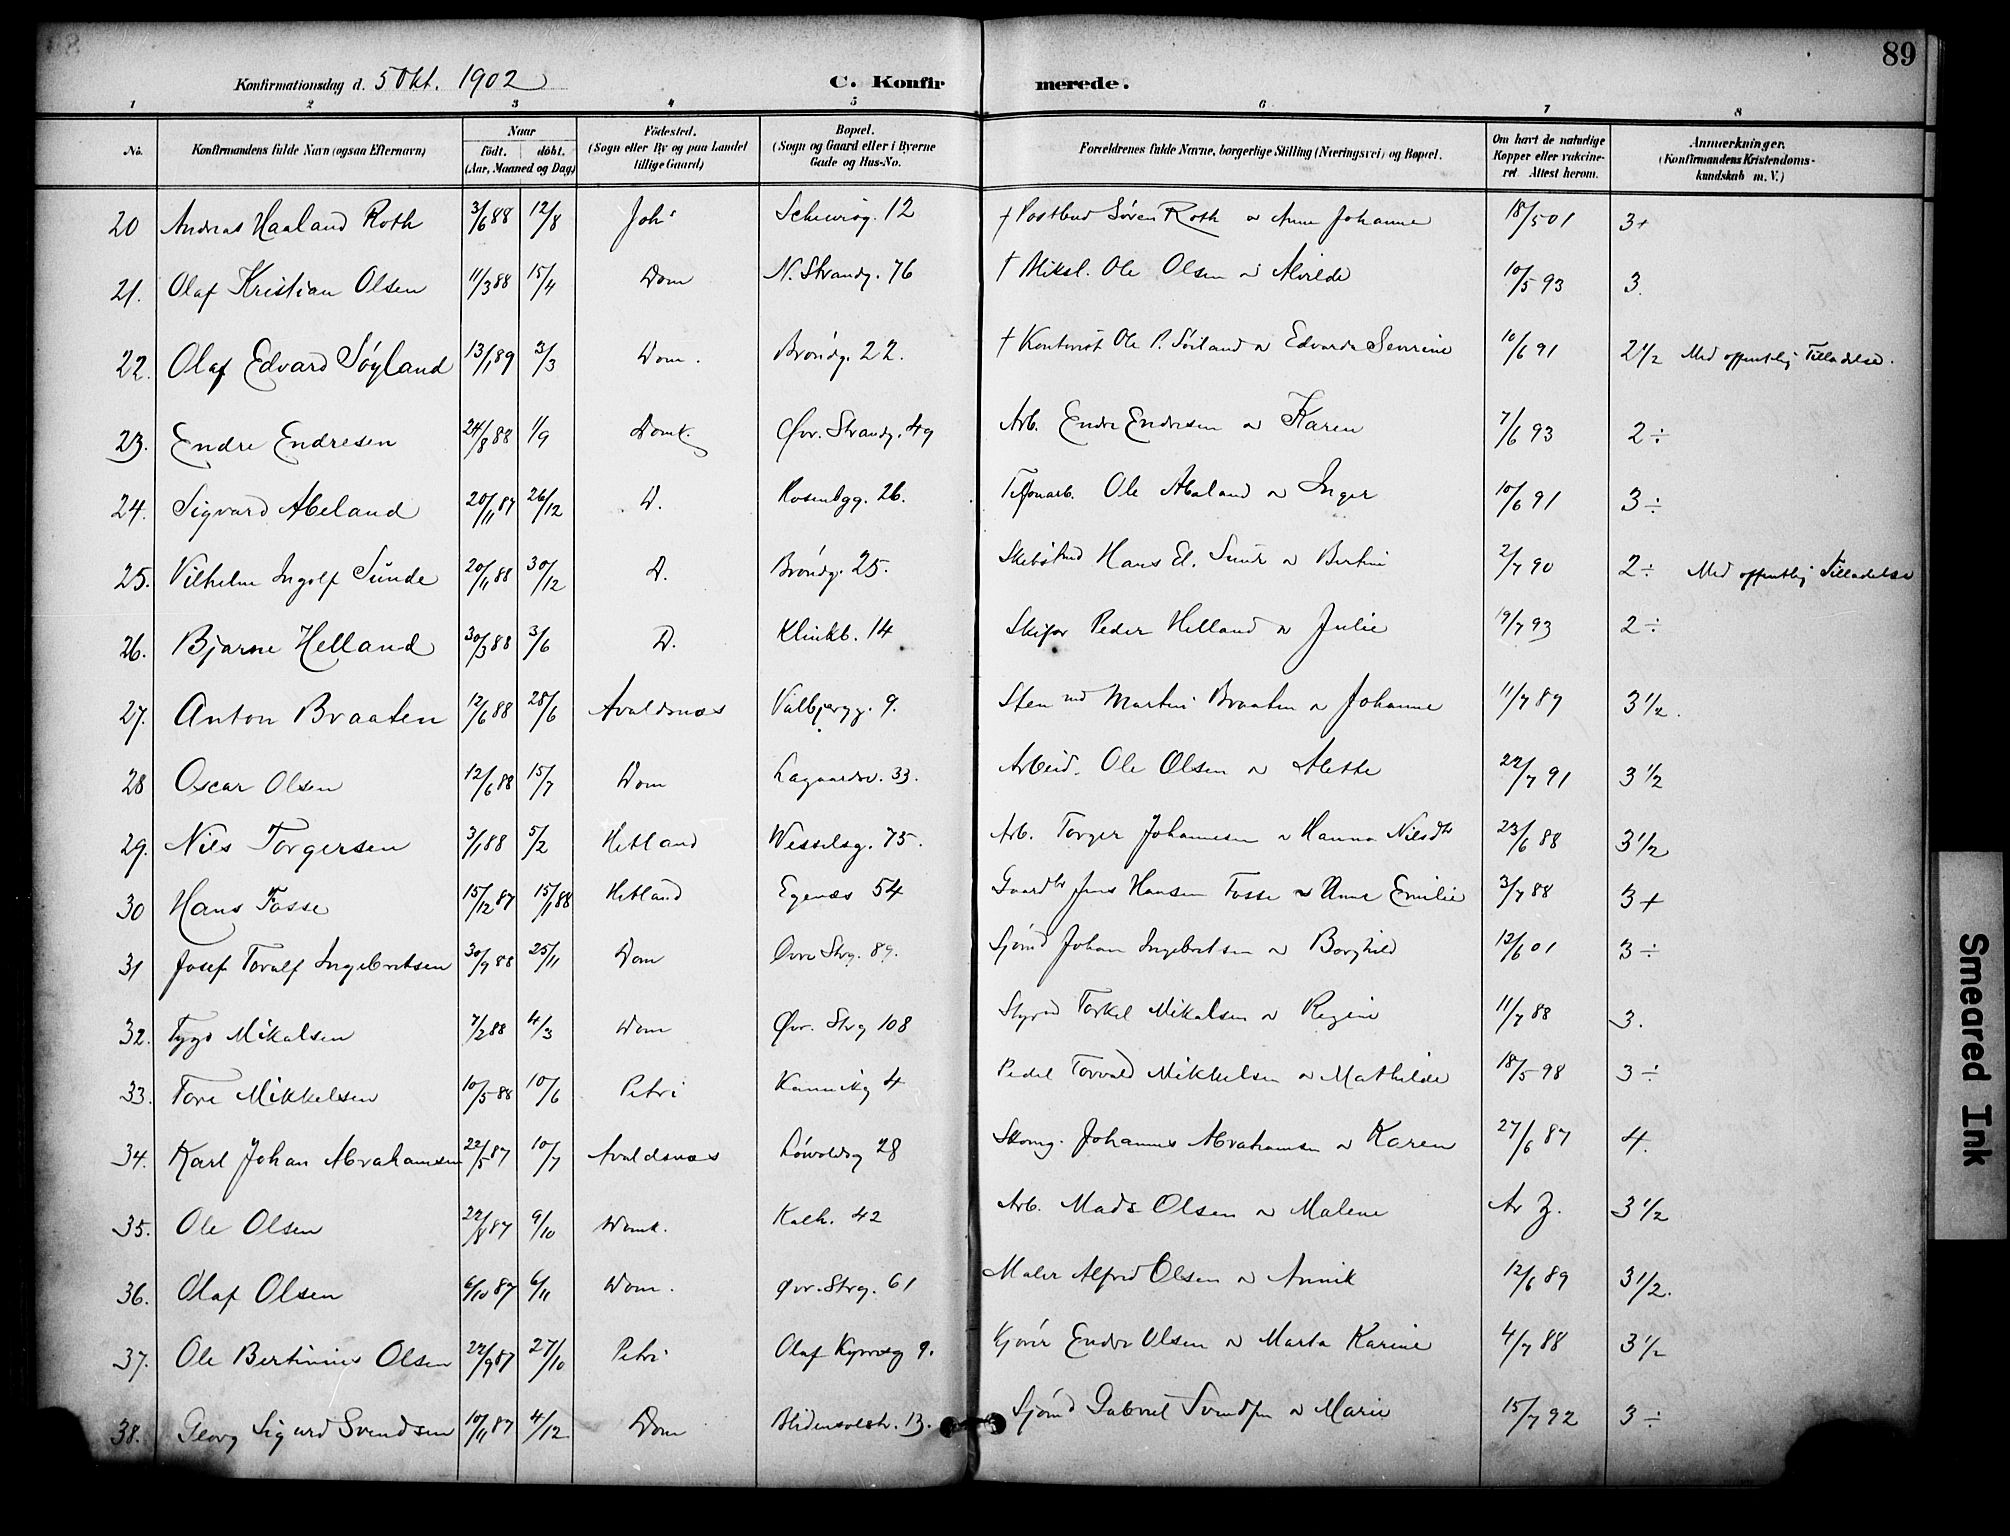 89
Konfirmationsdag d. 5 Okt. 1902 C. Konfirmerede.
1 2 3 4 5 6 7 8
No. Konfirmandens fulde Navn (ogsaa Efternavn) Naar født. døbt. (Aar, Maaned og Dag) Fødested. (Sogn eller By og paa Landet tillige Gaard) Bopæl. (Sogn og Gaard eller i Byerne Gade og Hus-No. Forældrenes fulde Navne, borgerlige Stilling (Næringsvei) og Bopæl. Om havt de naturlige Kopper eller vakcineret Attest herom. Anmærkninger. (Konfirmandens Kristendomskundskab m. V.)
20 Andreas Haaland Roth 3/6 88 12/8 Joh's 12 † Postbud Søren Roth Anne Johanne 18/5 01 3+
21. Olaf Kristian Olsen 11/3 88 15/4 Dom N. Strandg. 76 † Ole Olsen Alvilde 10/5 93 3.
22. Olaf Edvard Søyland 13/1 89 3/3 Dom. Brøndg. 22. † Ole P. Søiland Edvarda Severine 10/6 91 2 1/2 Med offentlig Tilladelse.
23. Endre Endresen 24/8 88 1/9 Domk. Øvr. Strandg. 49 Arb. Endre Endresen Karen 7/6 93 2 ÷
24. Sigvard Abeland 20/11 87 26/12 D. 26. Ole Abeland Inger 10/6 91 3 ÷
25. Vilhelm Ingolf Sunde 20/11 88 30/12 D. Brøndg. 25. Hans El. Sunde Bertine 2/7 90 2 ÷ Med offentlig Tilladelse
26. Bjarne Helland 30/3 88 3/6 D. Klinkb. 14 Skifør Peder Helland Julie 19/7 93 2 ÷
27. Anton Braaten 12/6 88 28/6 Avaldsnæs Valbjergg. 9. Martin Braaten Johanne 11/7 89 3 1/2.
28 Oscar Olsen 12/6 88 15/7 Dom Lagaardsv. 33. Arbeid. Ole Olsen Mette 22/7 91 3 1/2
29. Nils Torgersen 3/1 88 5/2 Hetland Wesselsg. 75. Arb. Torger Johannesen Hanna Nilsdtr 23/6 88 3 1/2
30 Hans Fosse 15/12 87 15/1 88 Hetland Egenæs 54 Gaardbr Jens Hansen Fosse Anne Emilie 3/7 88 3+
31 Josef Toralf Ingebretsen 30/9 88 25/11 Dom Øvre Strg. 89. Sjømd Johan Ingebretsen Borghild 12/6 01 3 ÷
32. Tygo Mikalsen 7/2 88 4/3 Dom Øvr. Strg 108 Styrmd Torkel Mikalsen Regine 11/7 88 3.
33. Tore Mikkelsen 10/5 88 10/6 Petri Kannikg 4 Pedel Torvald Mikkelsen Mathilde 18/5 98 3 ÷
34. Karl Johan Abrahamsen 22/5 87 10/7 Avaldsnæs Løvoldsg 28 Skomg. Johannes Abrahamsen Karen 27/6 87 4.
35. Ole Olsen 22/8 87 9/10 Domk. Kalh. 42 Arb. Mads Olsen Malene 3 1/2
36. Olaf Olsen 6/10 87 6/11 Dom. Øvr. Strg. 61 Maler Alfred Olsen Annik 12/6 89 3 1/2.
37. Ole Bertinius Olsen 22/9 87 27/10 Petri Olaf Kyrresg 9. Kjører Endre Olsen Marta Karine 4/7 88 3 1/2
38. Georg Sigurd Svendsen 10/11 87 4/12 Dom Blidensolstr. 13. Sjømd Gabriel Svendsen Marie 15/7 92 3 ÷
Smeared Ink